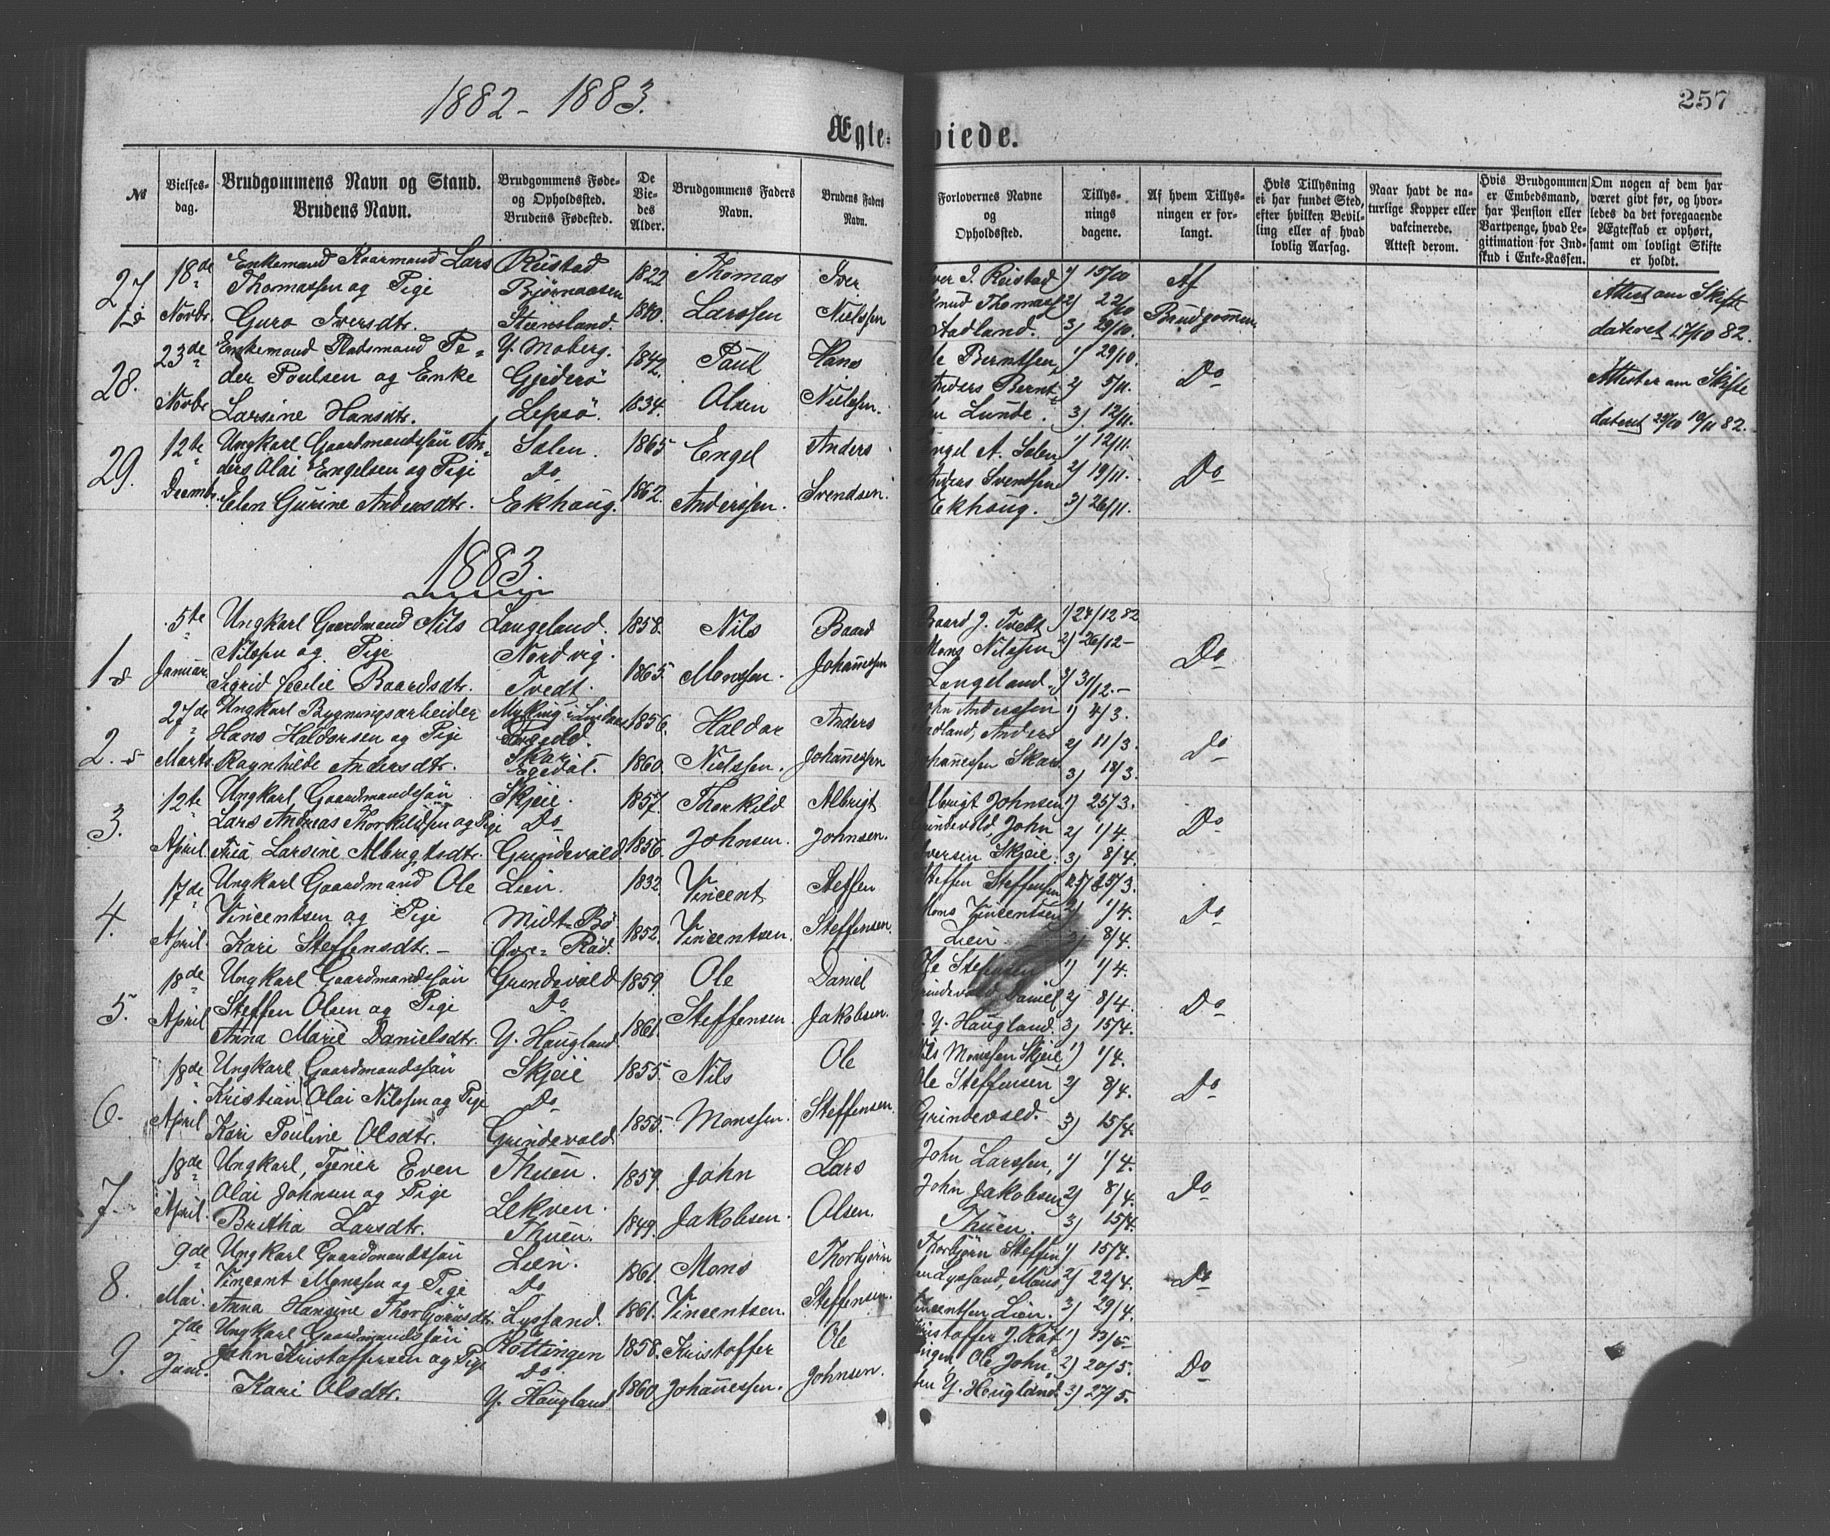 1882 - 1883.
257
Ægte- viede.
№
Vielses-dag.
Brudgommens Navn og Stand.
Brudens Navn.
Brudgommens Føde- og Opholdsted.
Brudens Fødested.
De Viedes Alder.
Brudgommens Faders Navn.
Brudens Faders Navn.
Forlovernes Navne og Opholdsted.
Tillysningsdagene.
Af hvem Tillysningen er forlangt.
Hvis Tillysning ei har fundet Sted, efter hvilken Bevilling eller af hvad lovlig Aarsag.
Naar havt de naturlige Kopper eller vakcinerede. Attest derom.
Hvis Brudgommen er Embedsmand, har Pension eller Vartpenge, hvad Legitimation for Indskud i Enke-Kassen.
Om nogen af dem har været givt før, og hvorledes da det foregaaende Ægteskab er ophørt, samt om lovligt Skifte er holdt.
27 18de Enkemand Kaarmand Lars Reistad 1822 Thomas Iver Iver I. Reistad 1) 15/10 Af
Thomassen og Pige Bjørnaasen Knud Thomass 2) 22/10 Brudgommen Attest om Skifte
Novbr. Guro Iversdtr. Steensland. 1840. Larssen Nielssen Aadland. 3) 29/10. dateret 17/10 82.
28. 23de Enkemand Pladsmand Pe- Y. Moberg. 1842. Paul Hans Ole Berntsen, 1) 29/10.
der Poulsen og Enke Gjederø Anders Bernt- 2) 5/11. Do Attester om Skifte
Novbr. Larsine Hansdtr. Lepsö. 1834. Olsen Nielssen. Lunde. 3) 12/11. dateret 29/10 19/11 82.
29. 12te Ungkarl Gaardmandssøn An- Solen. 1865 Engel Anders Engel A. Solen, 1) 12/11.
ders Olai Engelsen og Pige Do Anders Svendsen 2) 19/11. Do
Decemb. Elen Gurine Andersdtr. Ekhoug. 1862. Anderssen. Svendsen. Ekhoug. 3) 26/11.
1883.
1 5te Ungkarl Gaardmand Nils Langeland. 1858. Nils Baard Baard J. Tvedt 1) 24/12 82
Nilssen og Pige Nordvig. Mons Nilssen 2) 26/12 - Do
Januar. Sigrid Cecilie Baardsdtr. Tvedt. 1865. Monssen. Johannessen Langeland. 3) 31/12. -
2. 27de Ungkarl Bygningsarbeider Myking i 1856. Haldor Anders John Anderssen 1) 4/3.
Hans Haldorsen og Pige Anders 2) 11/3. Do
Marts Ragnhilde Andersdtr. Skar Egedal. 1860. Nielssen. Johannessen Johannessen Skar 3) 18/3.
3. 12te Ungkarl Gaardmandssøn Skjeie. 1857. Thorkild Albrigt Albrigt Johnsen 1) 25/3.
Lars Andreas Thorkildsen og Pige Do Grindevold, John 2) 1/4. Do
April. Larsine Albrigtsdtr. Grindevold. 1856. Johnsen. Johnsen. Iversen Skjeie. 3) 8/4.
4. 17de Ungkarl Gaardmand Ole Lien. 1832 Vincent Steffen Steffen Steffensen 25/3.
Vincentsen og Pige Midt-Bø Mons Vincentsen 2) 1/4. Do
April. Kari Steffensdtr. - Øvre-Rød. 1852. Vincentsen. Steffensen. Lien. 3) 8/4.
5. 18de Ungkarl Gaardmandssøn Grindevold 1859. Ole Daniel Ole Steffensen 1) 1/4.
Steffen Olsen og Pige Do Grindevold, Daniel 2) 8/4. Do
April Anna Marie Danielsdtr. Y. Haugland. 1861. Steffensen Jakobsen. Y. Haugland. 3) 15/4.
6. 18de Ungkarl Gaardmandssøn Skjeie 1855. Nils Ole Nils Monssen Skjeie 1) 1/4.
Kristian Olai Nilssen og Pige Do Ole Steffensen 2) 8/4. Do
April Kari Pouline Olsdtr. Grindevold. 1855. Monssen. Steffensen. Grindevold. 3) 15/4.
7. 18de Ungkarl, Tjener Even Thuen. 1859. John Lars John Larssen, 1) 1/4.
Olai Johnsen og Pige Lekven. John Jakobsen 2) 8/4. Do
April. Britha Larsdtr. Thuen. 1849. Jakobsen. Olsen. Thuen. 3) 15/4.
8. 9de Ungkarl Gaardmandssøn Lien. 1861. Mons Thorbjørn Thorbjørn Steffen 1) 15/4.
Vincent Monssen og Pige Do Lyssand, Mons 2) 22/4. Do
Mai. Anna Hansine Thorbjørnsdtr. Lyssand. 1861. Vincentsen. Steffensen. Vincentsen Lien. 3) 29/4.
9. 7de Ungkarl Gaardmandssøn Røttingen 1858. Kristoffer Ole Kristoffer J. Røt 1) 13/5
John Kristoffersen og Pige Do. ingen, Ole John 2) 20/5. Do
Juni. Kari Olsdtr. Y. Haugland. 1860. Johannessen. Johnsen. sen Y. Haugland. 3) 27/5.